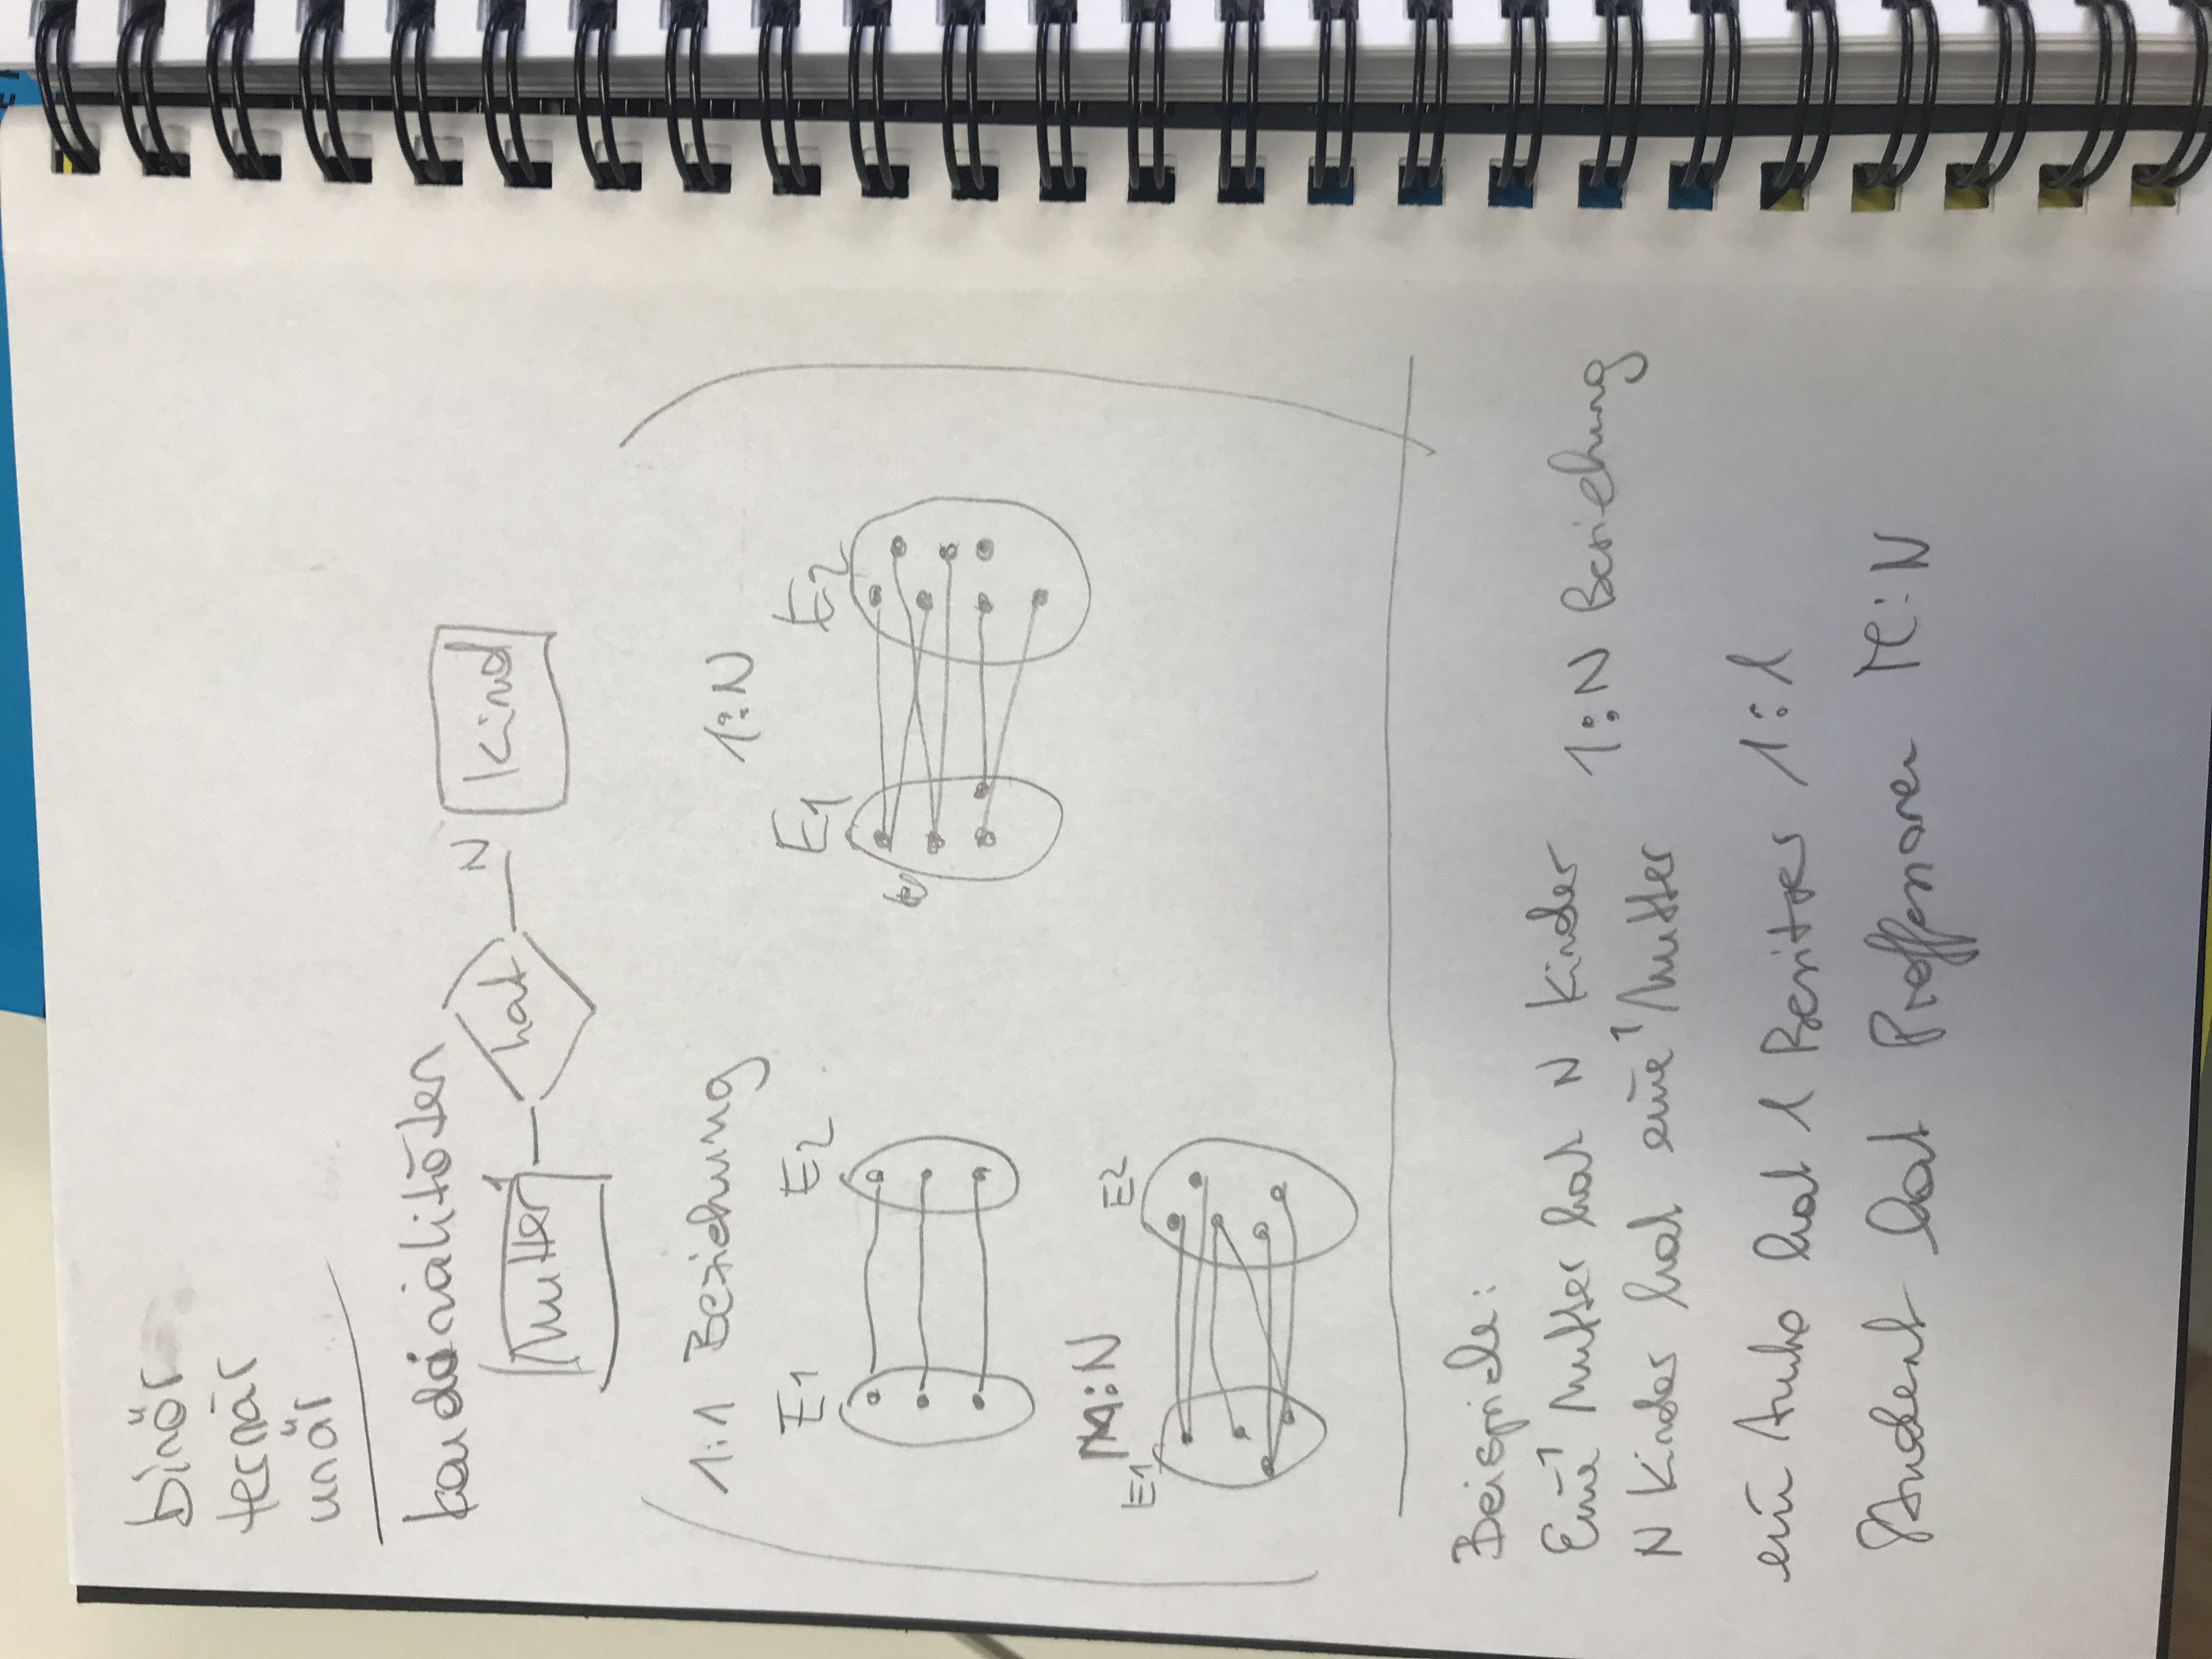 binär
ternär
unär
Kardinalitäten
Mutter 1 hat N Kind
1:1 Beziehung
E1 E2
1:N
E1 E2
M:N
E1 E2
Beispiele:
Eine 1 Mutter hat N Kinder
N Kinder hat eine 1 Mutter
1:N Beziehung
ein Auto hat 1 Besitzer 1:1
Student hat Proffessoren M:N